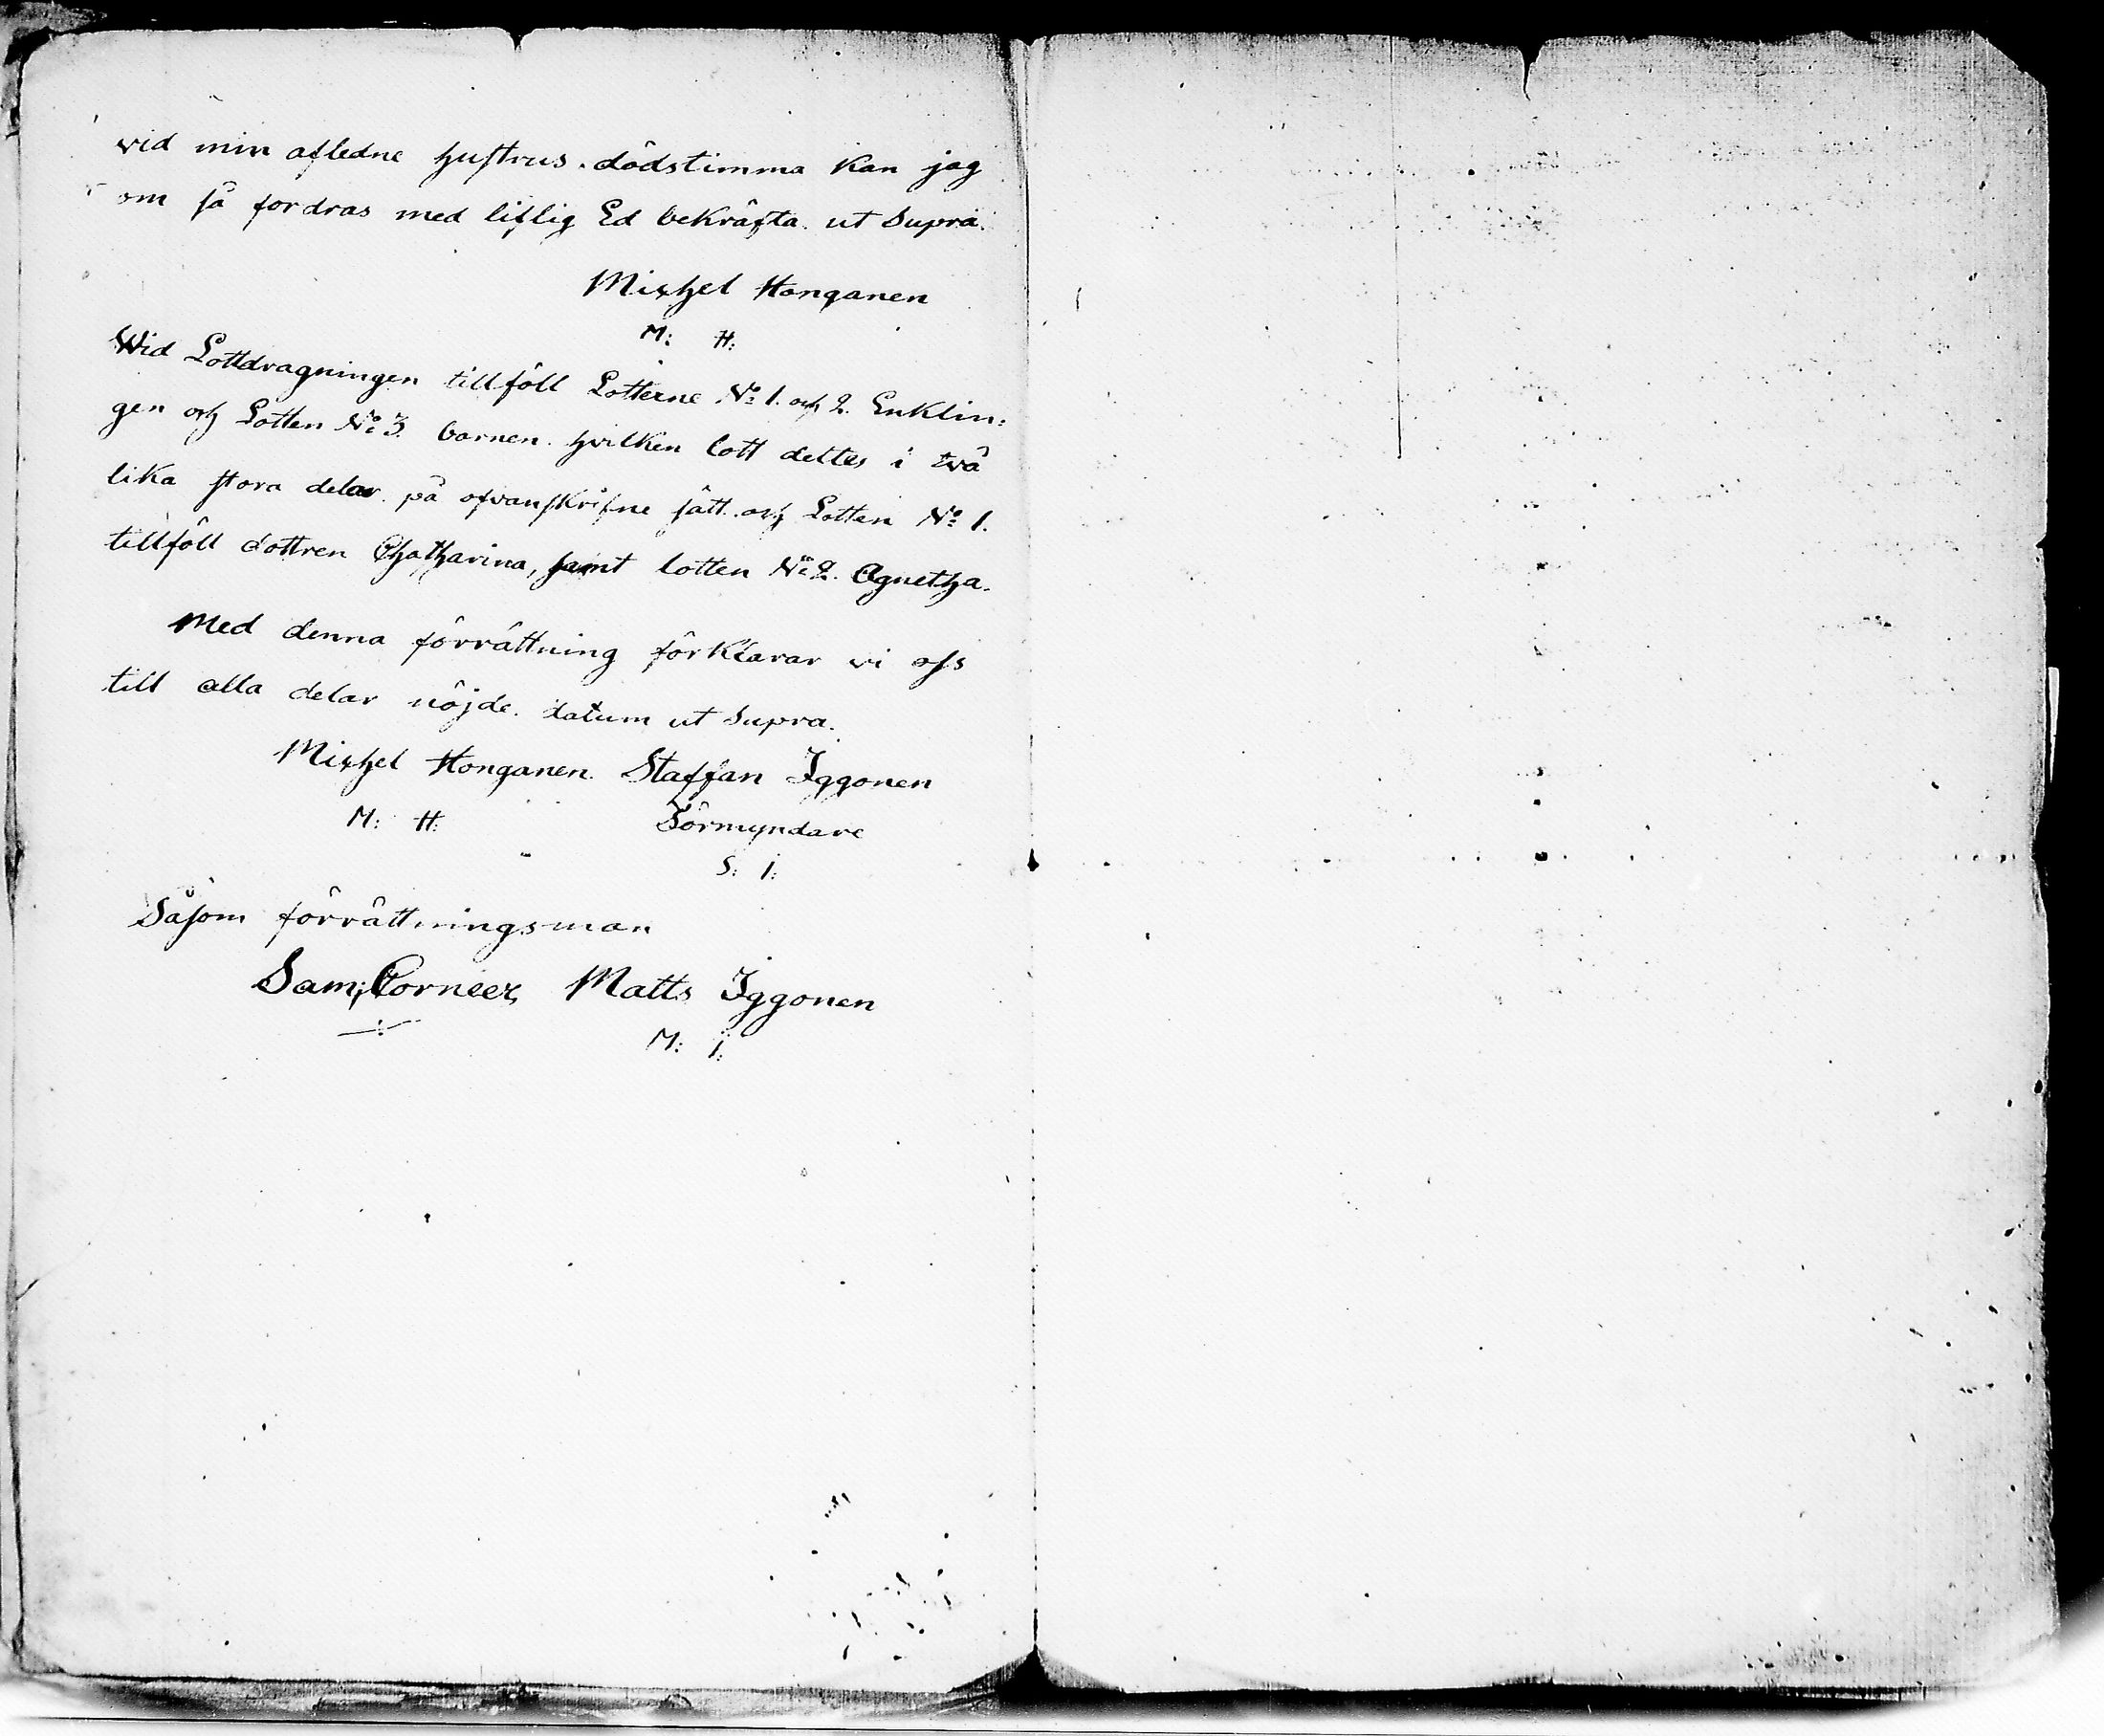 vid min afledne hustrus dödstimma kan jag
om så fordras med liflig Ed bekräfta. ut Supra.
Michel Honganen
M: H:
Wid Lottdragningen tillföll Lotterne No 1. och 2. Enklin:
gen och Lotten No 3. barnen. hvilken lott deltes i två
lika stora delar på ofvanskrifne sätt. och Lotten No 1.
tillföll dottren Chatharina, samt lotten No 2. Agnetha.
Med denna förrättning förklarar vi oss
till alla delar nöjde. datum ut Supra.
Michel Honganen. Staffan Iggonen
M: H: Förmyndare
S: I:
Såsom förrättningsman
Sam: Corneer, Matts Iggonen
M: I: